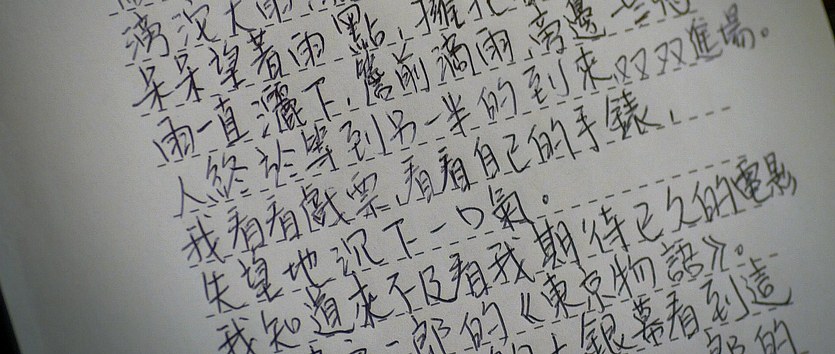 滂沱大雨
呆呆望着雨點,擁
雨一直灑下,簷前滴雨,旁邊一
人終於等到另一半的到來双双進場。
我看看戲票,看看自己的手錶,
失望地沉下一口氣。
我知道來不及看我期待已久的電影
郎的《東京物語》。
銀幕看到這
郎的